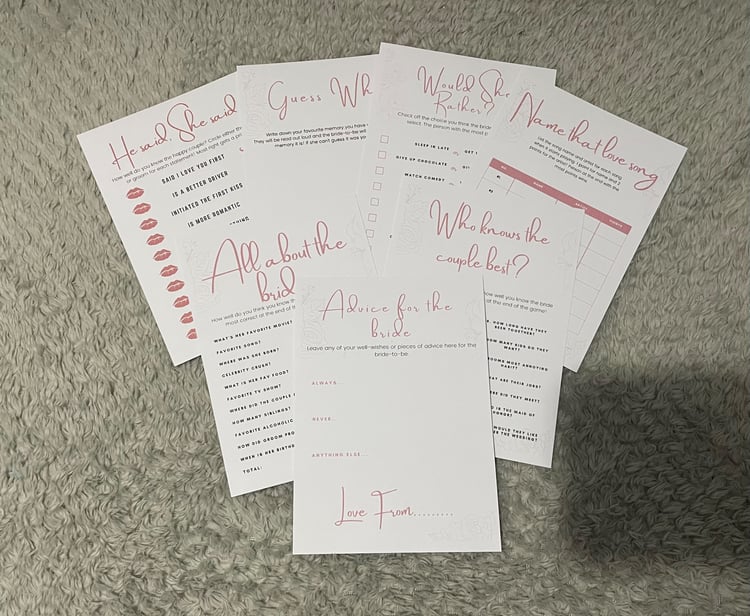 He said, She said
How well do you know the happy couple? Circle either the
or groom for each statement? Most right gets a
SAID I LOVE YOU FIRST
IS A BETTER DRIVER
INITIATED THE FIRST KISS
IS MORE ROMANTIC
Guess
Write down your favourite memory you have
They will be read out loud and the bride-to-be will
memory it is! If she cant guess it was
Would She
Rather?
Check off the choice you think the bride
select. The person with the most
SLEEP IN LATE or GET
GIVE UP CHOCOLATE or
WATCH COMEDY or
Name that love song
List the song name and artist for each song
when it starts playing. 1 point for name and 2
points for the artist! Tally at the end with the
most points wins
NO. SONG ARTIST POINTS
#1
#2
All about the
bride
How well do you think you know the
most correct at the end of the
WHAT'S HER FAVORITE MOVIE?
FAVORITE SONG?
WHERE WAS SHE BORN?
CELEBRITY CRUSH?
WHAT IS HER FAV FOOD?
FAVORITE TV SHOW?
WHERE DID THE COUPLE
HOW MANY SIBLINGS?
FAVORITE ALCOHOLIC
HOW DID GROOM
WHEN IS HER
TOTAL:
Who knows the
couple best?
well you know the bride
at the end of the game!
HOW LONG HAVE THEY
BEEN TOGETHER?
MANY KIDS DO THEY
WANT?
MOST ANNOYING
HABIT?
ARE THEIR JOBS?
DID THEY MEET?
IS THE MAID OF
HONOR?
WOULD THEY LIKE
THE WEDDING?
Advice for the
bride
Leave any of your well-wishes or pieces of advice here for the
bride-to-be.
ALWAYS...
NEVER...
ANYTHING ELSE...
Love From.........